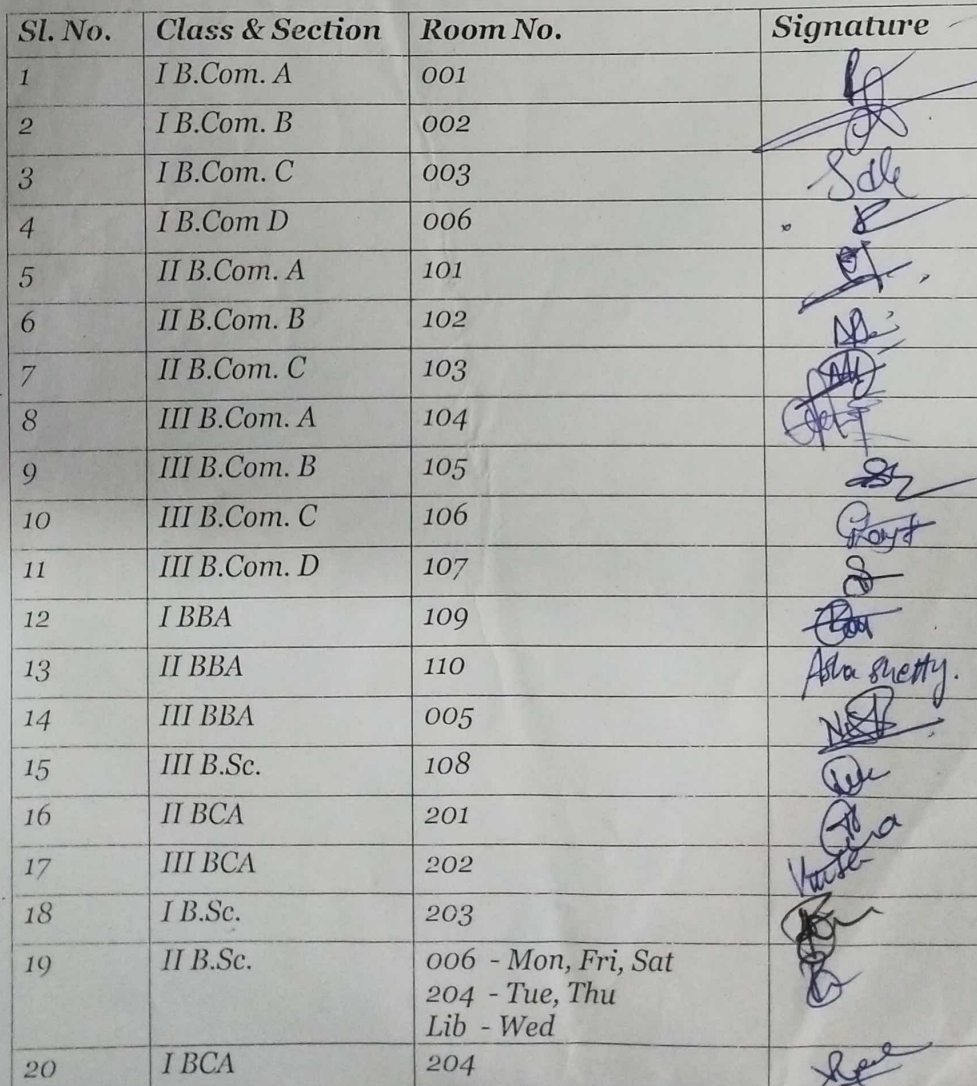 Sl. No. Class & Section Room No. Signature
1 I B.Com. A 001
2 I B.Com. B 002
3 I B.Com. C 003
4 I B.Com D 006
5 II B.Com. A 101
6 II B.Com. B 102
7 II B.Com. C 103
8 III B.Com. A 104
9 III B.Com. B 105
10 III B.Com. C 106
11 III B.Com. D 107
12 I BBA 109
13 II BBA 110 Asha Shetty.
14 III BBA 005
15 III B.Sc. 108
16 II BCA 201
17 III BCA 202
18 I B.Sc. 203
19 II B.Sc. 006 - Mon, Fri, Sat
204 - Tue, Thu
Lib - Wed
20 I BCA 204